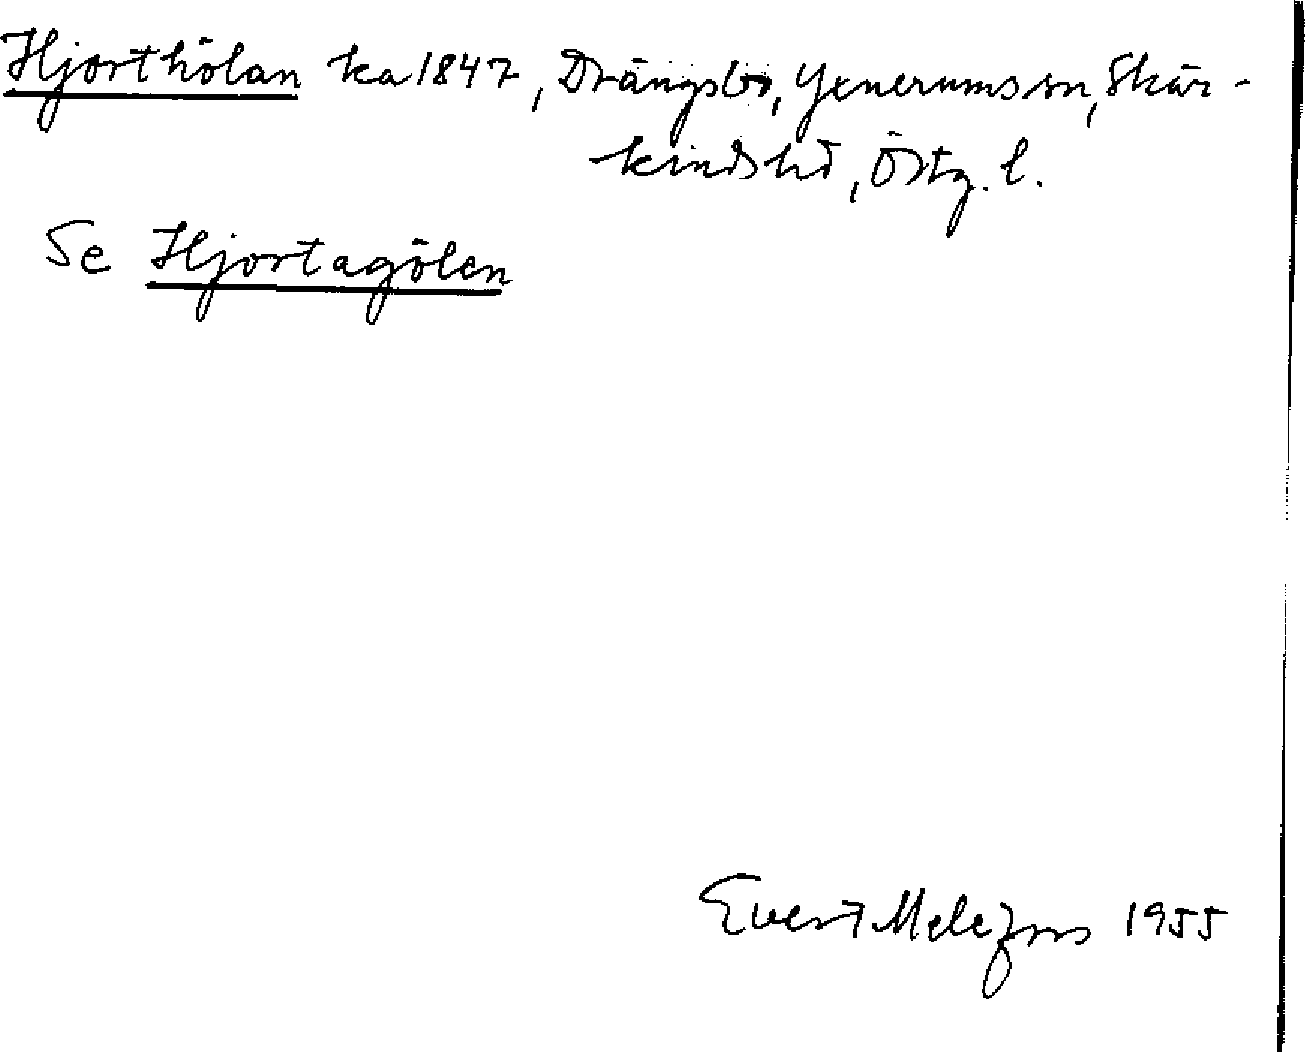 Hjorthölan ka 1847, Drängsbo, Yxnerums sn, Skär-
kinds hd, Östg. l.
Se Hjortagölen
Evert Melefors 1955